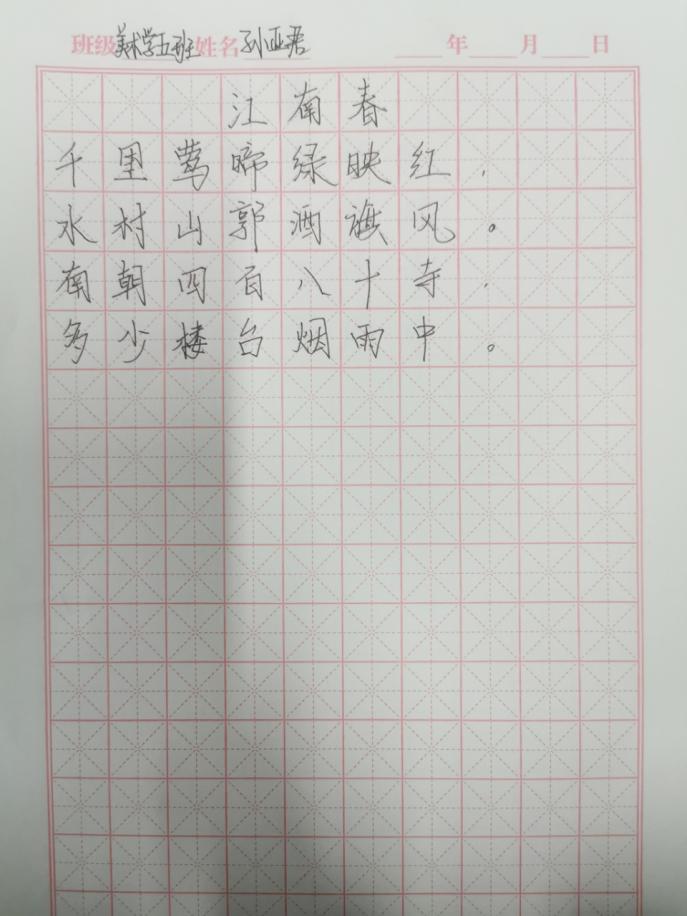 班级美术学五班姓名孙亚君 年 月 日
江南春
千里莺啼绿映红，
水村山郭酒旗风。
南朝四百八十寺，
多少楼台烟雨中。